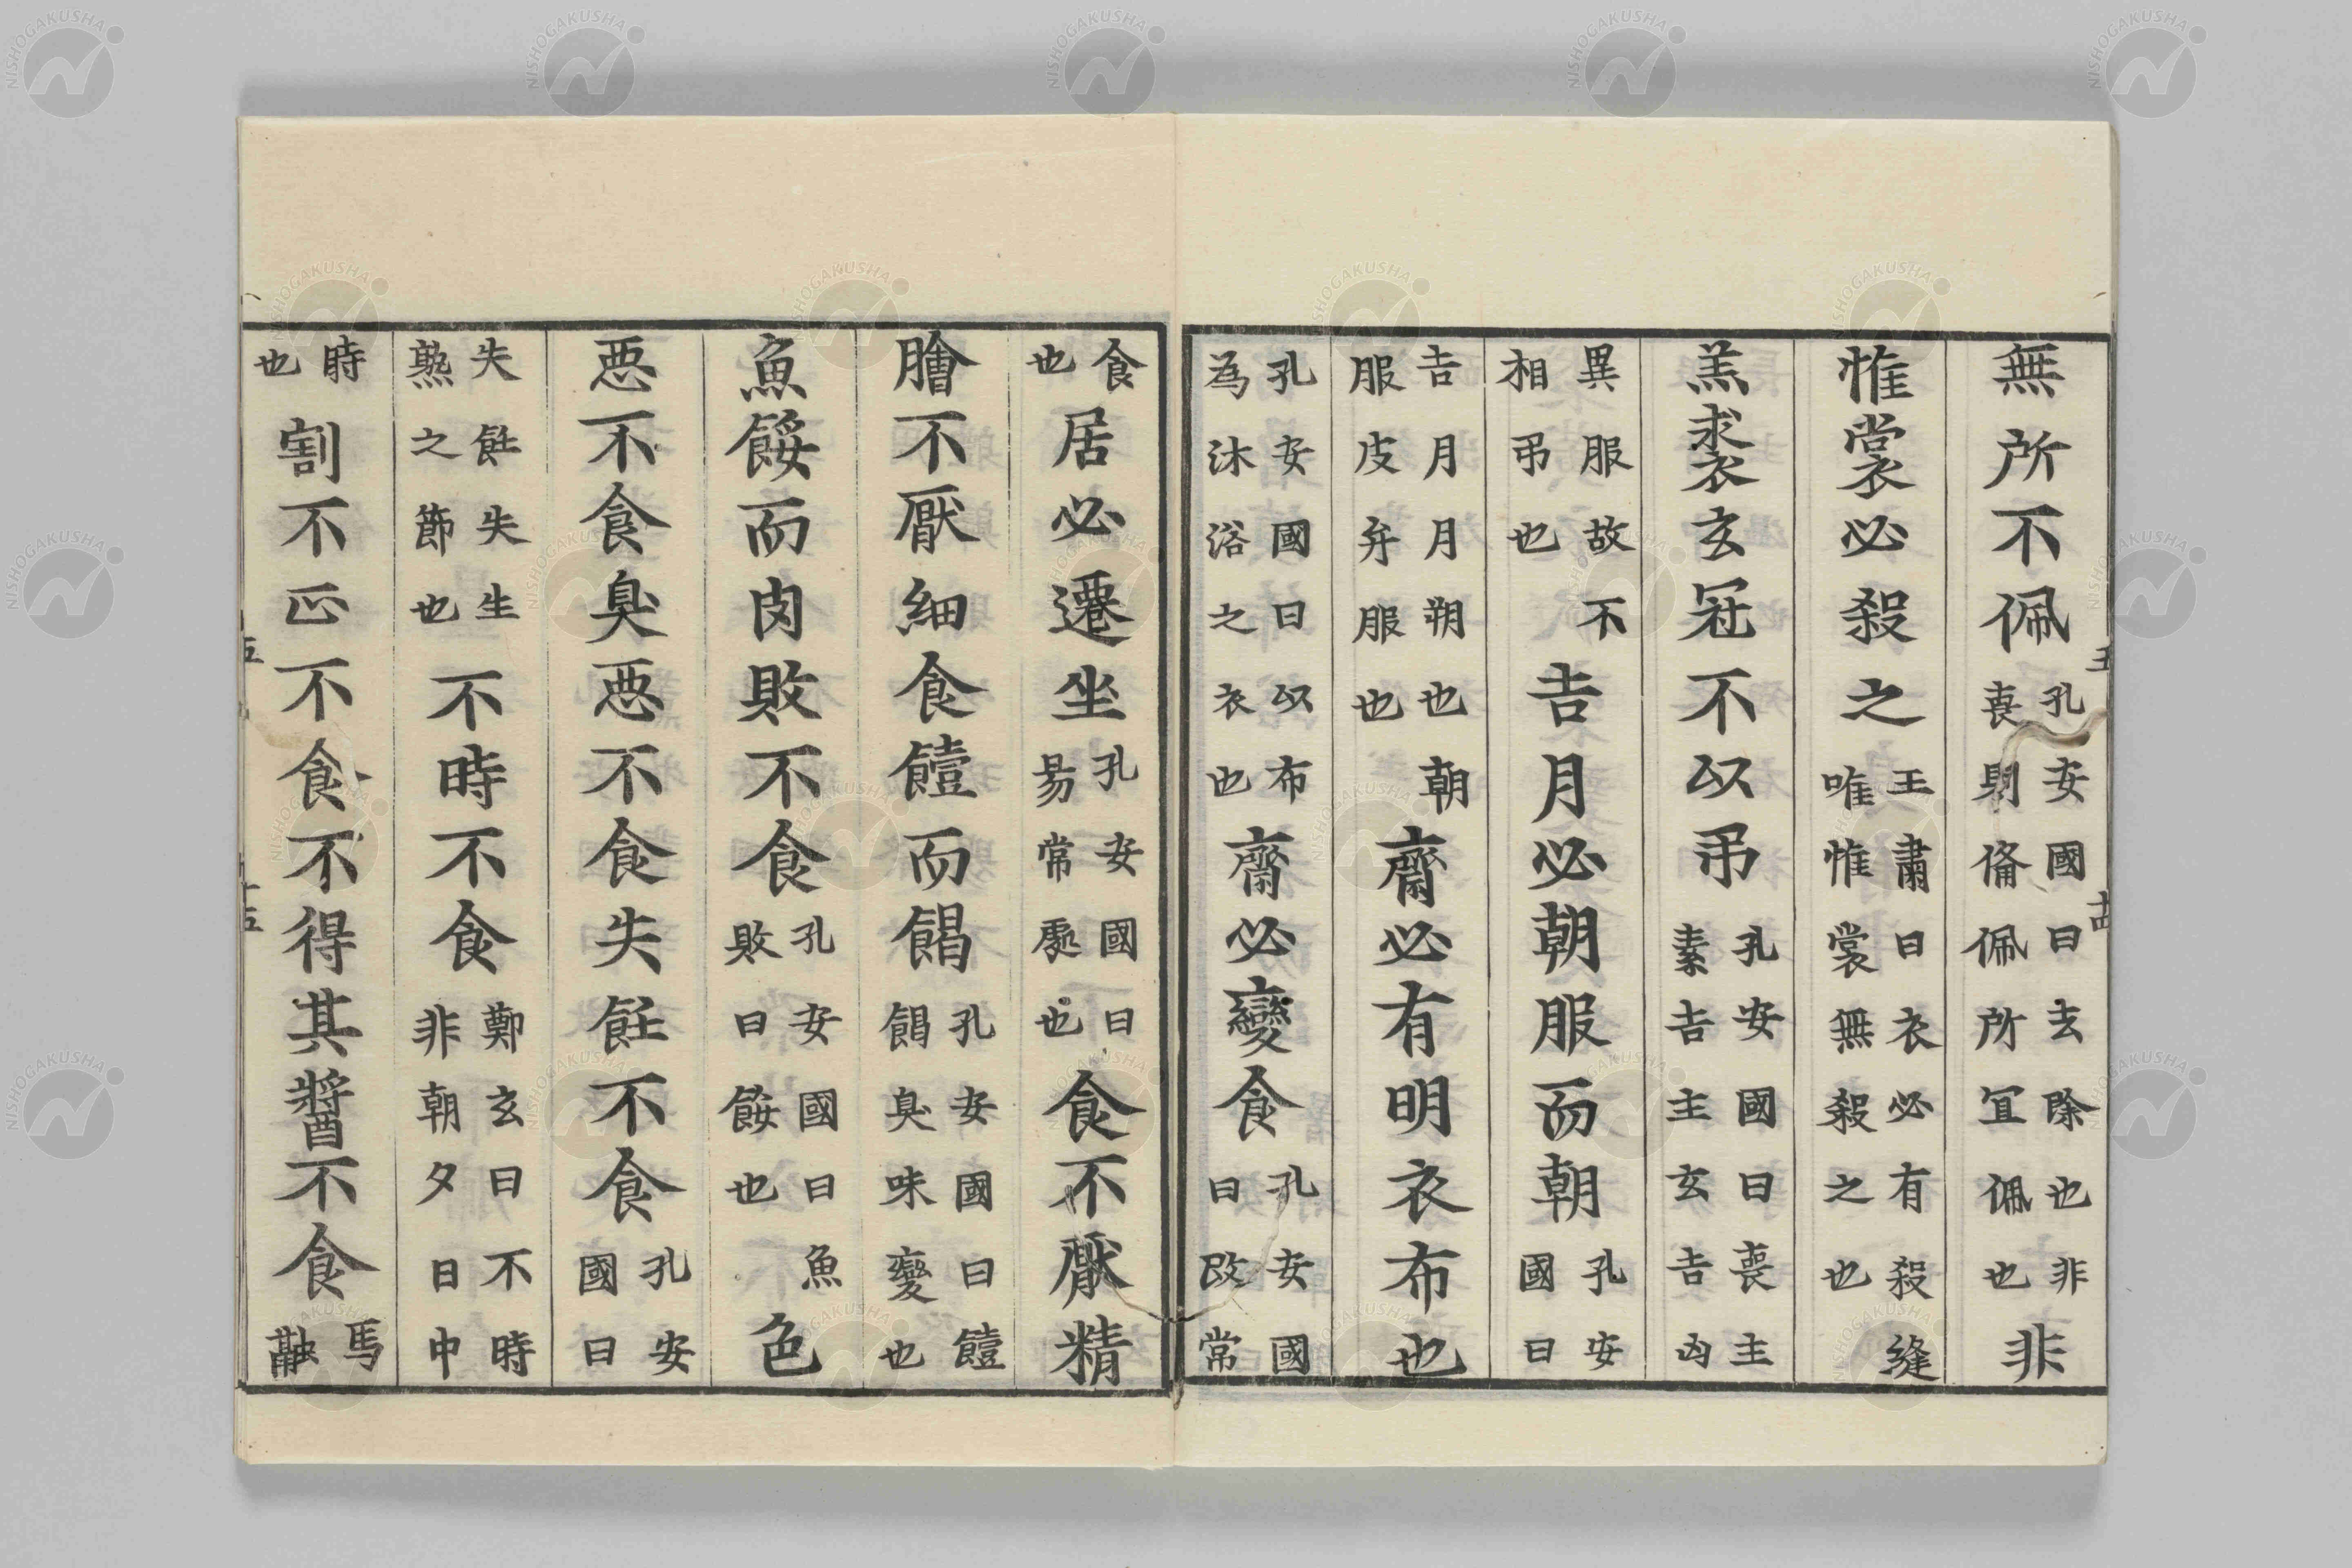 無所不佩孔安國曰去除也非喪則備佩所宜佩也非
惟裳必殺之王肅曰衣必有殺縫唯惟裳無殺之也
羔裘玄冠不以弔孔安國曰喪主素吉主玄吉凶
異服故不相弔也吉月必朝服而朝孔安國曰
吉月月朔也朝服皮弁服也齋必有明衣布也
孔安國曰以布為沐浴之衣也齋必變食孔安國曰改常
食也居必遷坐孔安國曰易常處也食不厭精
膾不厭細食饐而餲孔安國曰饐餲臭味變也
魚餒而肉敗不食孔安國曰魚敗曰餒也色
惡不食臭惡不食失飪不食孔安國曰
失飪失生熟之節也不時不食鄭玄曰不時非朝夕日中
時也割不正不食不得其醬不食馬融